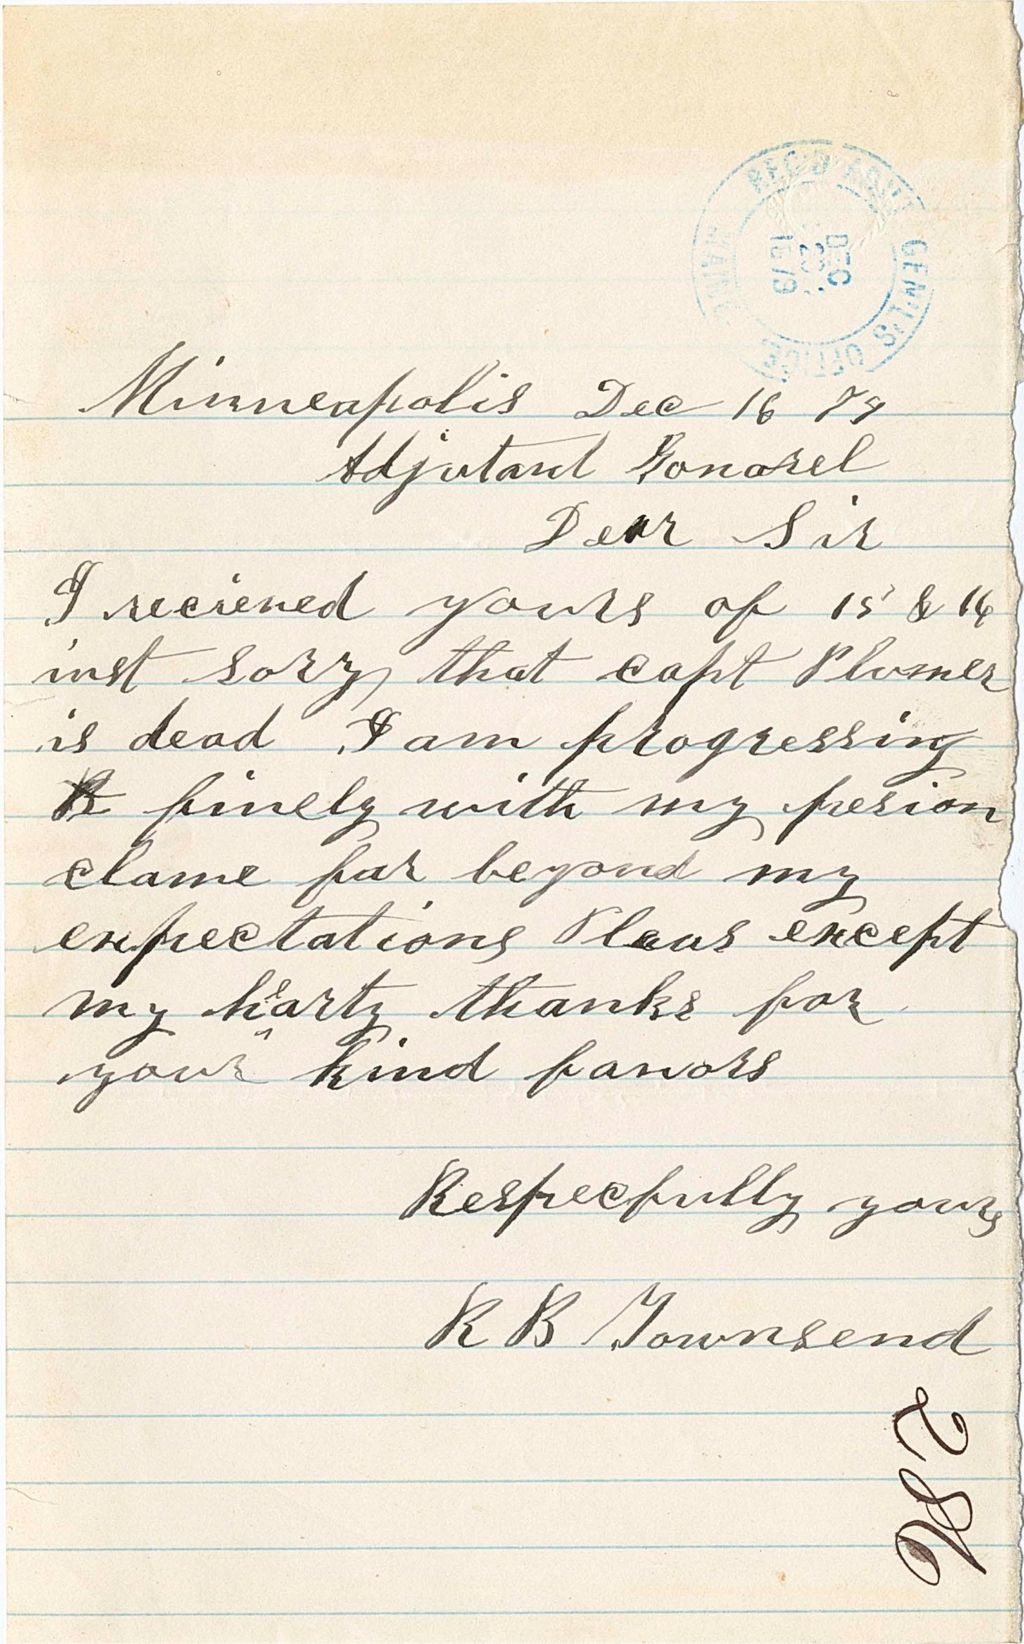 REC'D ADJ'T GEN'L'S OFFICE MAINE
DEC
1879
Minneapolis Dec 16 79
Adjutant Gonarel
Dear Sir
I reciened yours of 15 & 16
inst sorry that capt Plumer
is dead I am progressing
finely with my pesion
clame far beyond my
expectations Pleas except
my hearty thanks for
your kind favors
Respecfully yours
R B Townsend
286